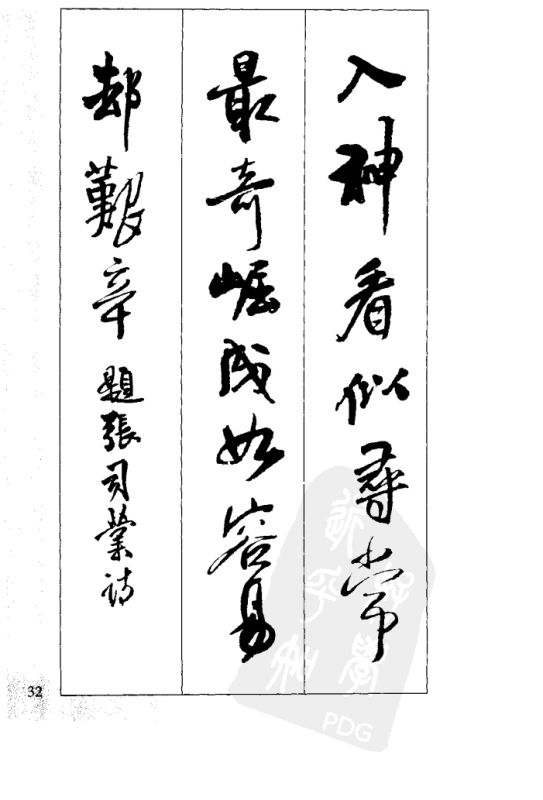 入神看似尋常
最奇崛成如容易
却艱辛
題張司業诗
32
PDG